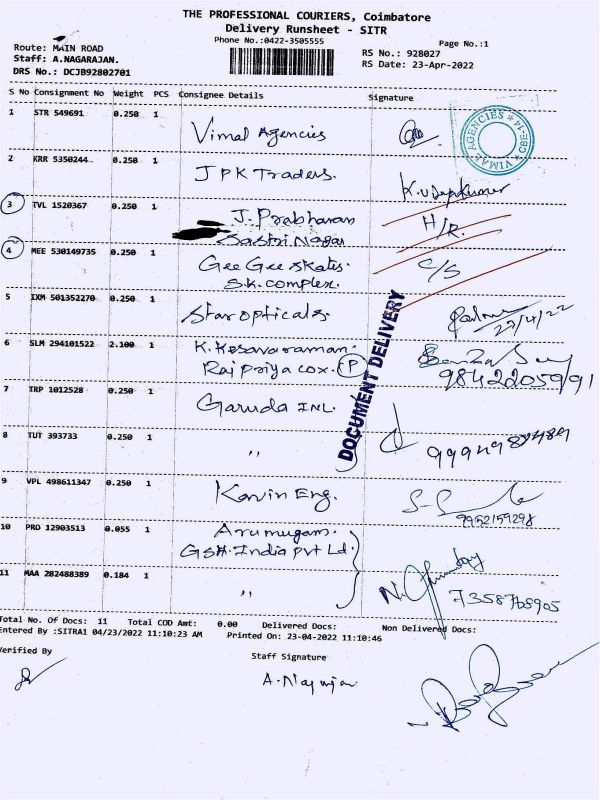 THE PROFESSIONAL COURIERS, Coimbatore
Delivery Runsheet - SITR
Phone No.:0422-3505555
Page No.:1
Route: MAIN ROAD
Staff: A.NAGARAJAN.
DRS No.: DCJB92802701
RS No.: 928027
RS Date: 23-Apr-2022
S No Consignment No Weight PCS Consignee Details Signature
1 STR 549691 0.250 1 Vimal Agencies
VIMAL AGENCIES ★ CBE-14 ★
2 KRR 5350244 0.250 1 JPK Traders.
3 TVL 1520367 0.250 1 J. Prabharan H/R.
Sastri Nagar
4 MEE 530149735 0.250 1 Gee Gee skates. C/S
S.K. complex.
5 IXM 501352270 0.250 1 Star opticals.
6 SLM 294101522 2.100 1 K. Kesavaraman.
Rajpriya cox. P 9842205991
DOCUMENT DELIVERY
7 TRP 1012528 0.250 1 Garuda INL.
8 TUT 393733 0.250 1 ,,
9 VPL 498611347 0.250 1 Kavin Eng.
9952159298
10 PRO 12903513 0.055 1 Arumugam.
GSH. India pvt Ld.
11 MAA 282488389 0.184 1 ,, 7358768905
Total No. Of Docs: 11 Total COD Amt: 0.00 Delivered Docs: Non Delivered Docs:
Entered By :SITRA1 04/23/2022 11:10:23 AM Printed On: 23-04-2022 11:10:46
Verified By
Staff Signature